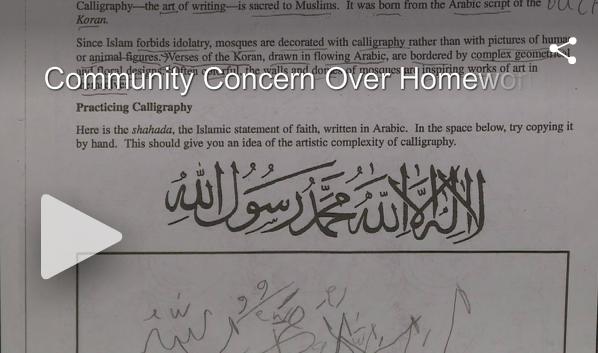 Calligraphy—the art of writing—is sacred to Muslims. It was born from the Arabic script of the
Koran.
Since Islam forbids idolatry, mosques are decorated with calligraphy rather than with pictures of
or animal figures. Verses of the Koran, drawn in flowing Arabic, are bordered by complex
and floral designs. Often the walls and of mosques are inspiring works of art in
Community Concern Over
Practicing Calligraphy
Here is the shahada, the Islamic statement of faith, written in Arabic. In the space below, try copying it
by hand. This should give you an idea of the artistic complexity of calligraphy.
لا إله إلا الله محمد رسول الله